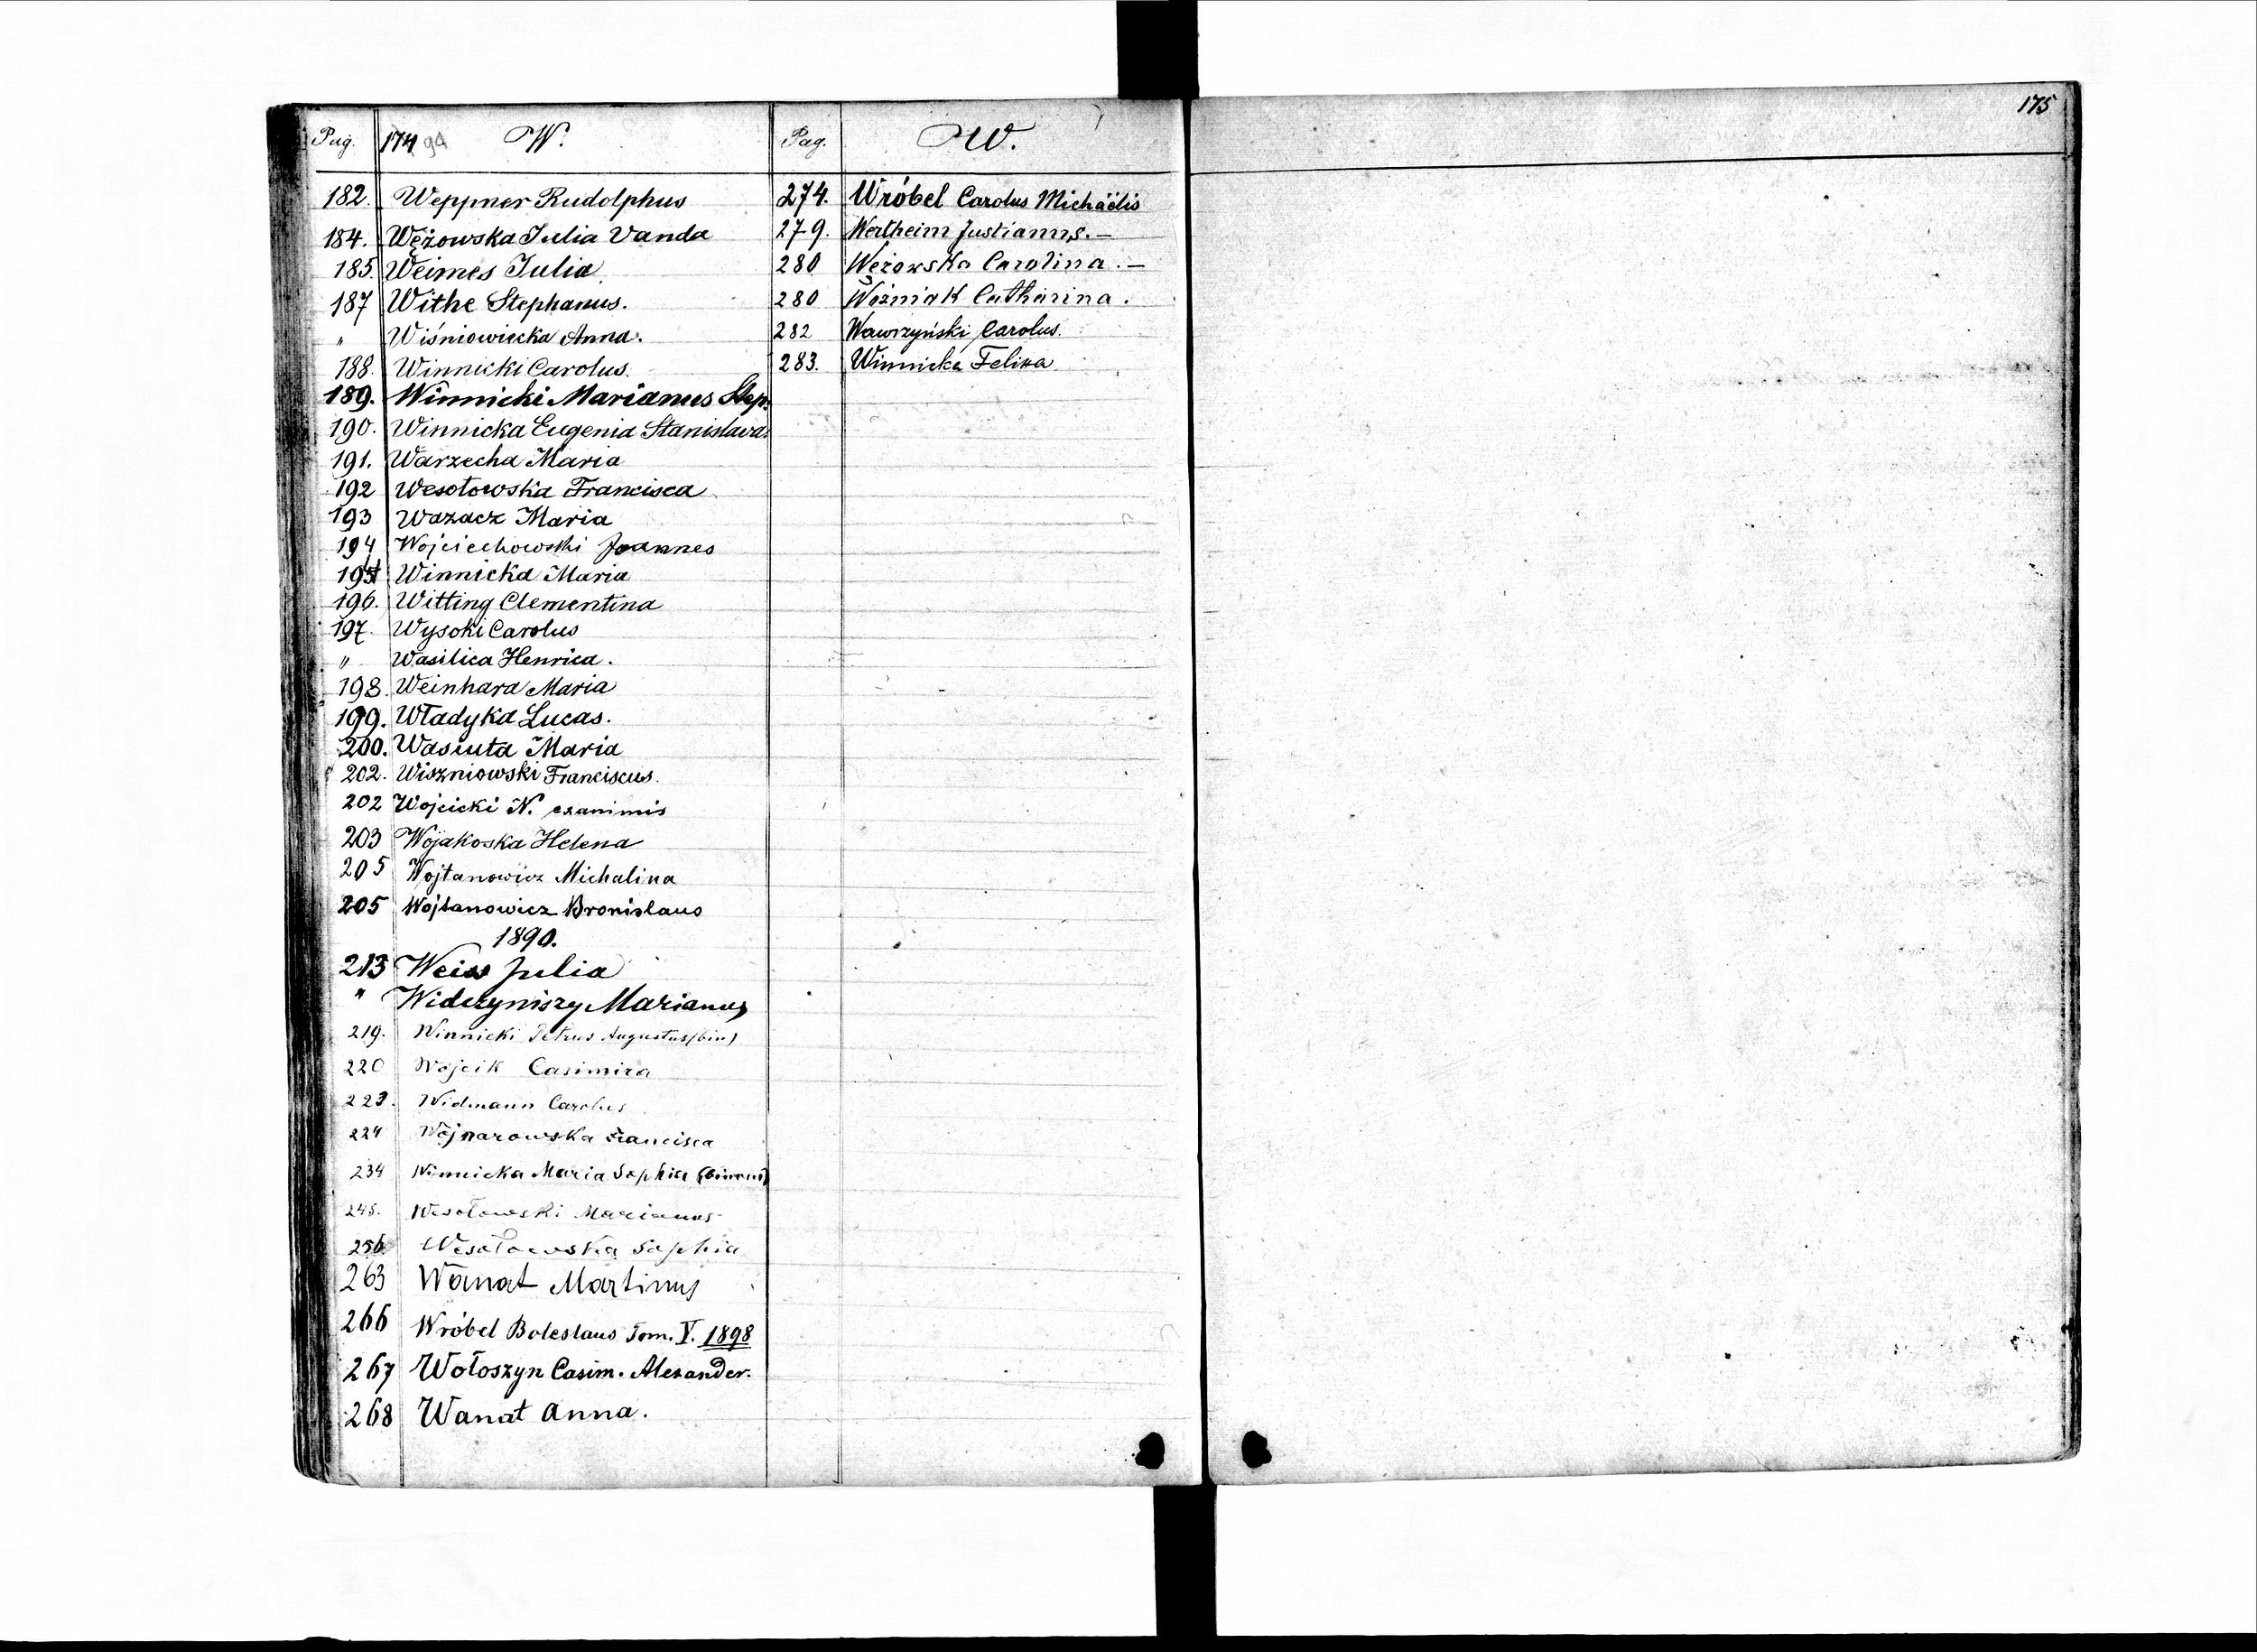 Pag. 174 94 W.
182. Weppner Rudolphus
184. Wężowska Julia Vanda
185. Weimes Julia
187 Withe Stephanus.
" Wiśniowiecka Anna.
188. Winnicki Carolus.
189. Winnicki Marianus Step.
190. Winnicka Eugenia Stanislava.
191. Warzecha Maria
192 Wesołowska Francisca
193 Wazacz Maria
194 Wojciechowski Joannes
195 Winnicka Maria
196. Witting Clementina
197. Wysoki Carolus
" Wasilica Henrica.
198. Weinhard Maria
199. Władyka Lucas.
200. Wasiuta Maria
202. Wiszniowski Franciscus.
202 Wojcicki N. exanimis
203 Wojakoska Helena
205 Wojtanowicz Michalina
205 Wojtanowicz Bronislaus
1890.
213 Weiss Julia
" Marianus
219. Winnicki Petrus Augustus (bin)
220 Wójcik Casimira
223. Widmann Carolus
224 Wojnarowska Francisca
234 Winnicka Maria Sophia
245. Wesołowski Marianus
256 Wesołowska Sophia
263 Wanat Martinus
266 Wróbel Boleslaus Tom. V. 1898
267 Wołoszyn Casim. Alexander.
268 Wanat Anna.
Pag. W.
274. Wróbel Carolus Michäelis
279. Wertheim Justianus.—
280 Wężowska Carolina.—
280 Woźniak Catharina.
282 Wawrzyński Carolus.
283. Winnicka Felixa
175